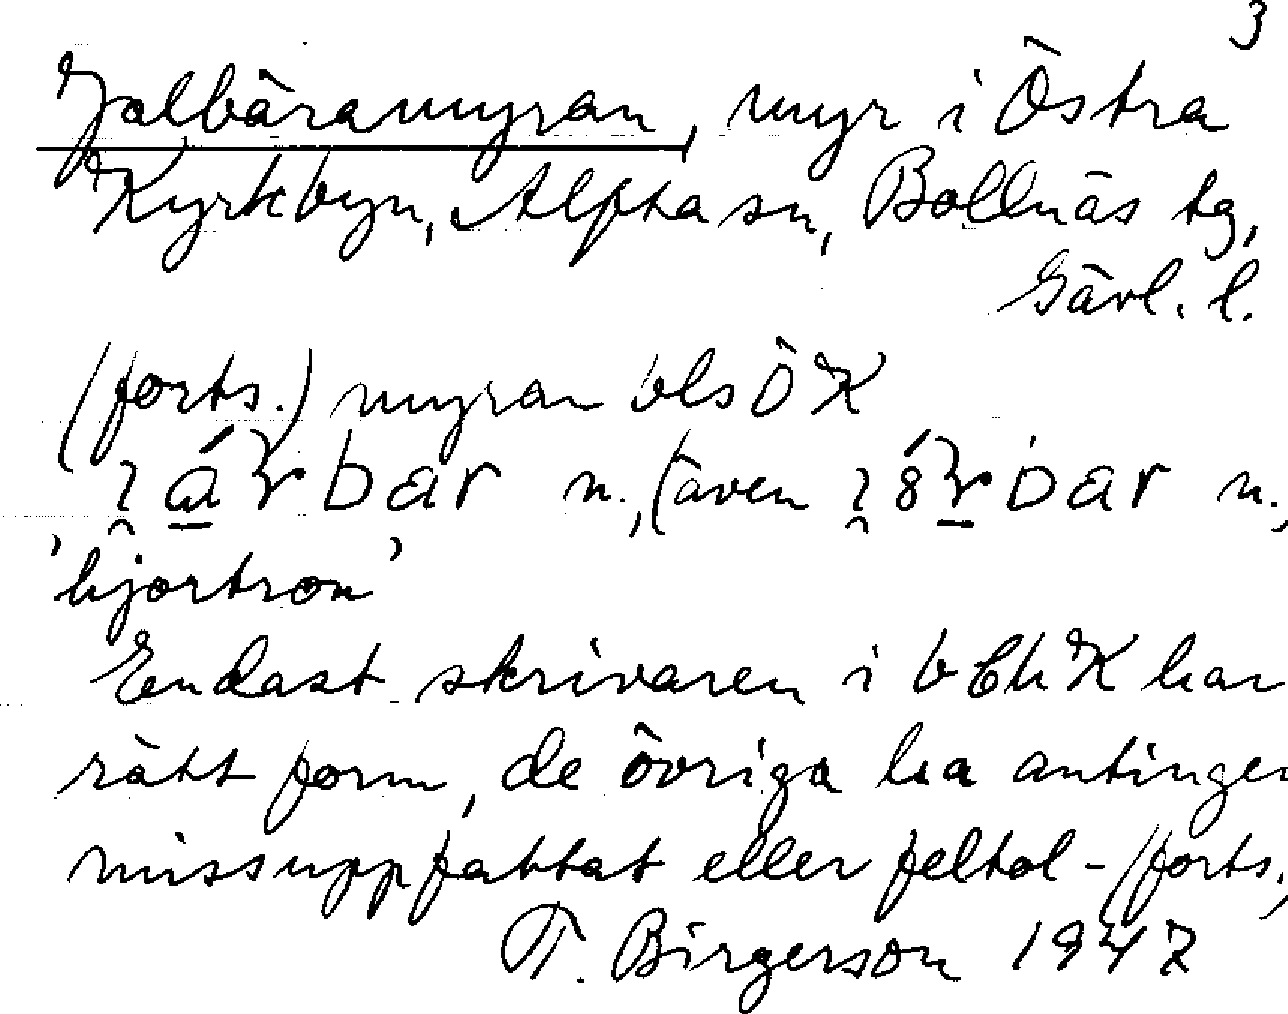 3
Jolbäramyran, myr i Östra
Kyrkbyn, Alfta sn, Bollnäs tg,
Gävl. l.
(forts.) myran bls ÖK
bar n., (även bar n.,
'hjortron'
Endast skrivaren i har
rätt form, de övriga ha antingen
missuppfattat eller feltol- (forts.)
T. Birgerson 1947